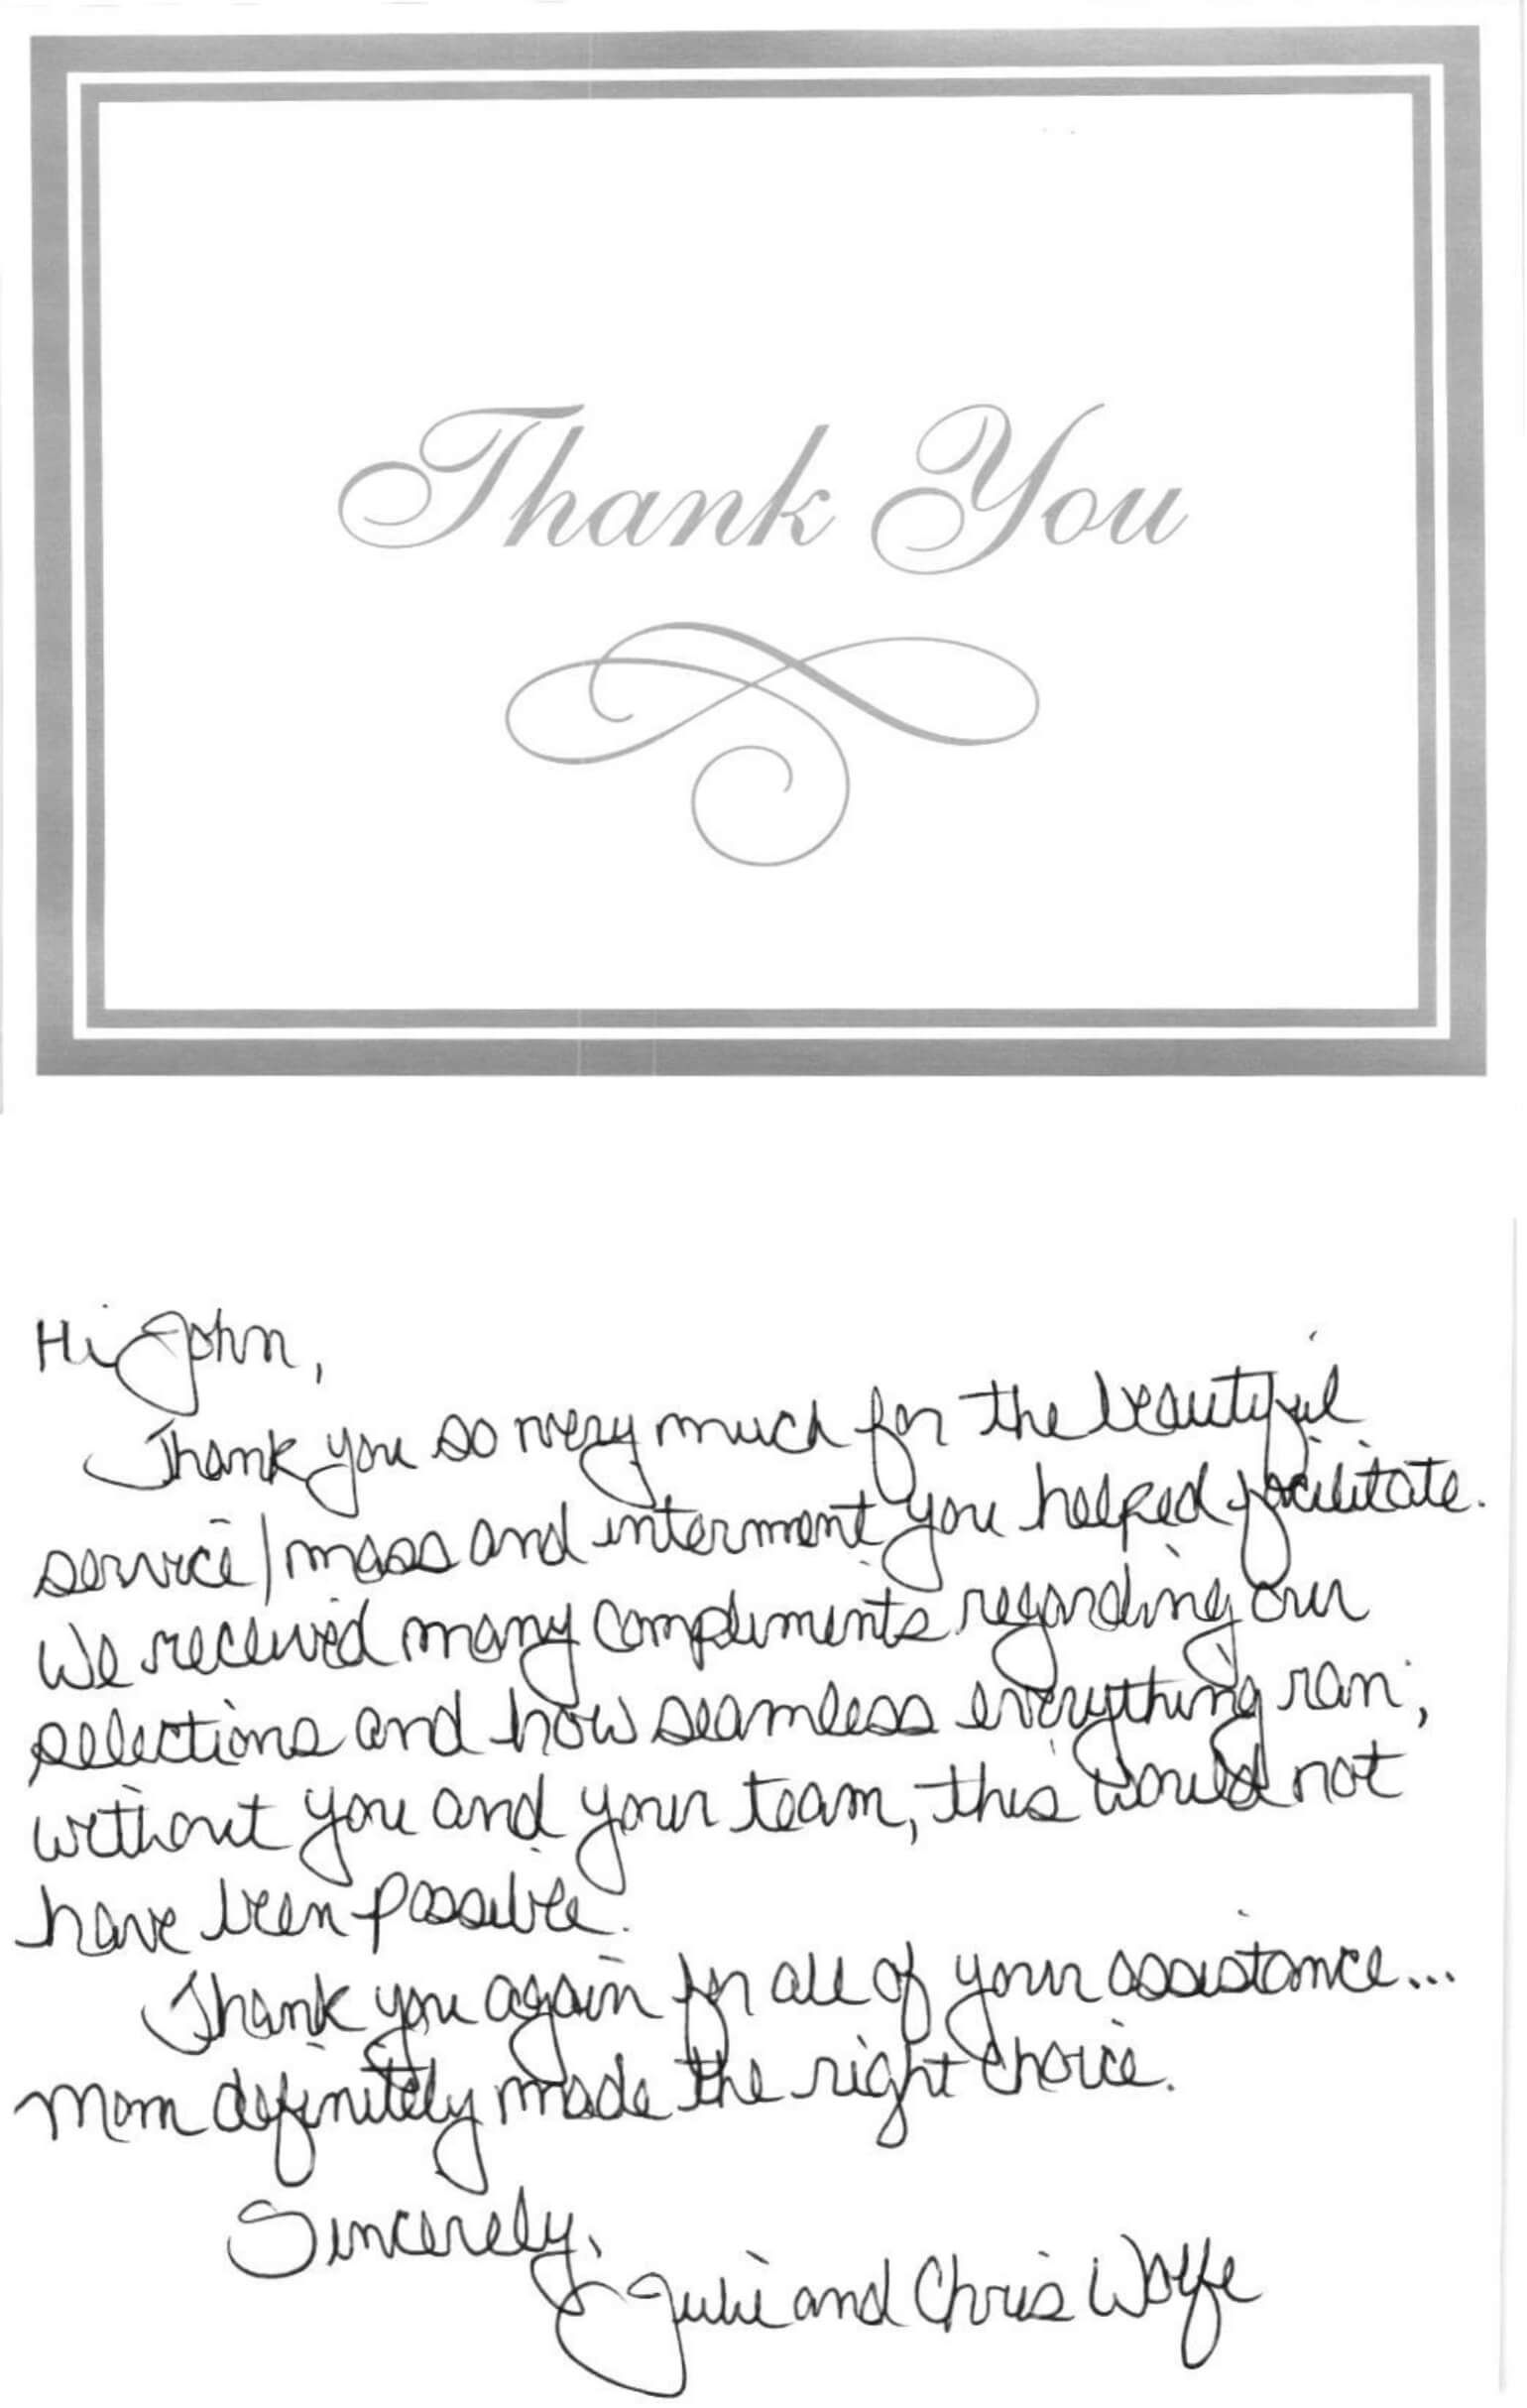 Thank You
Hi John,
Thank you so very much for the beautiful
service/mass and interment you helped facilitate.
We received many compliments regarding our
selections and how seamless everything ran;
without you and your team, this would not
have been possible.
Thank you again for all of your assistance...
Mom definitely made the right choice.
Sincerely,
Julie and Chris Wolfe